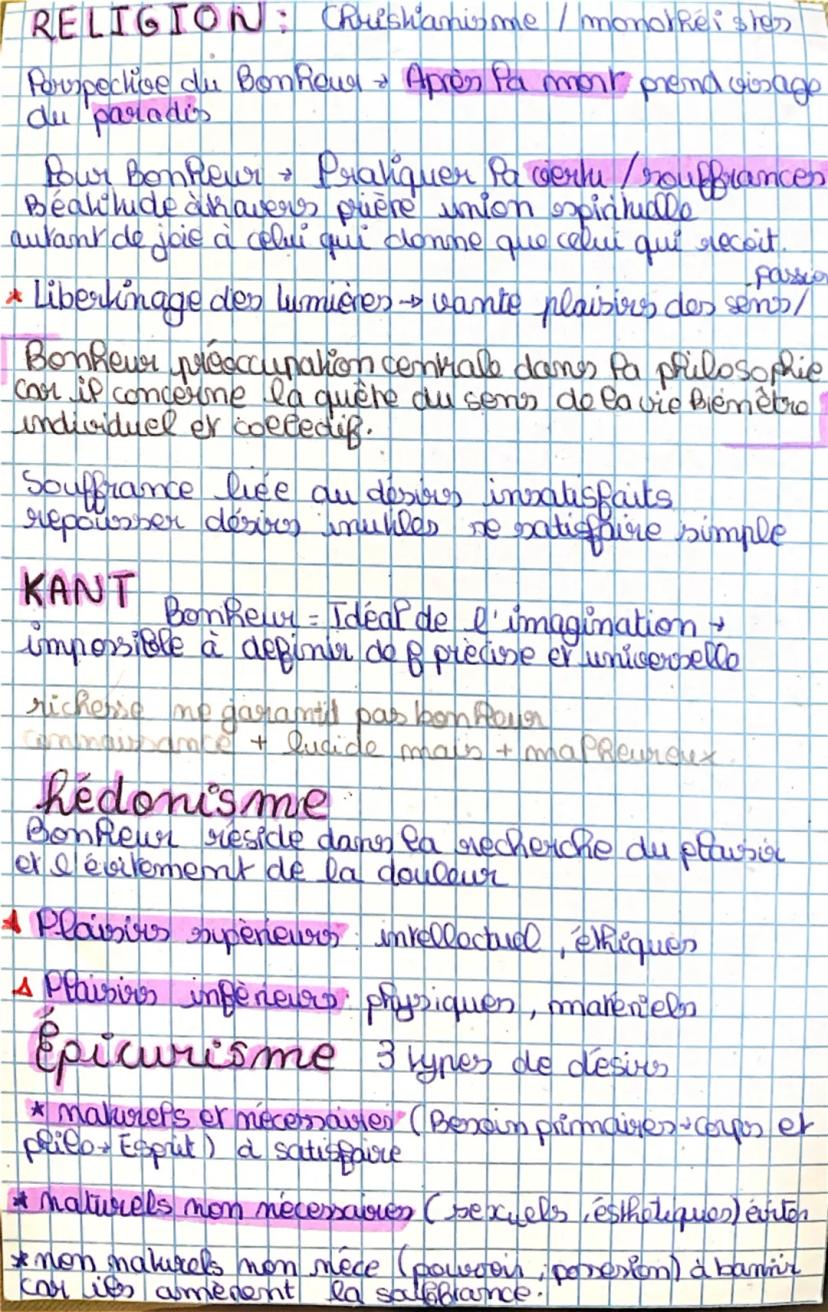 RELIGION : Christianisme / monothéistes
Perspective du Bonheur → Après la mort prend visage
du paradis
Pour Bonheur → Pratiquer la vertu / souffrances
Béatitude à travers prière union spirituelle
autant de joie à celui qui donne que celui qui recoit.
passion
* Libertinage des lumières → vante plaisirs des sens /
Bonheur préoccupation centrale dans la philosophie
car il concerne la quête du sens de la vie Bien être
individuel et collectif.
Souffrance liée au désirs insatisfaits
repousser désirs inutiles se satisfaire simple
KANT
Bonheur = Idéal de l'imagination →
impossible à definir de f précise et universelle
richesse ne garantit pas bonheur
connaissance + lucide mais + malheureux
hédonisme
Bonheur réside dans la recherche du plaisir
et l'évitement de la douleur
Plaisirs supèrieurs : intellectuel, éthiques
Plaisirs infèrieurs : physiques, materiels
Épicurisme 3 types de désirs
* naturels et nécessaires (Besoin primaires → corps et
philo → Esprit) à satisfaire
* naturels non nécessaires (sexuels, ésthetiques) éviter
* non naturels non néce (pouvoir, possesion) à bannir
car ils amènent la souffrance.